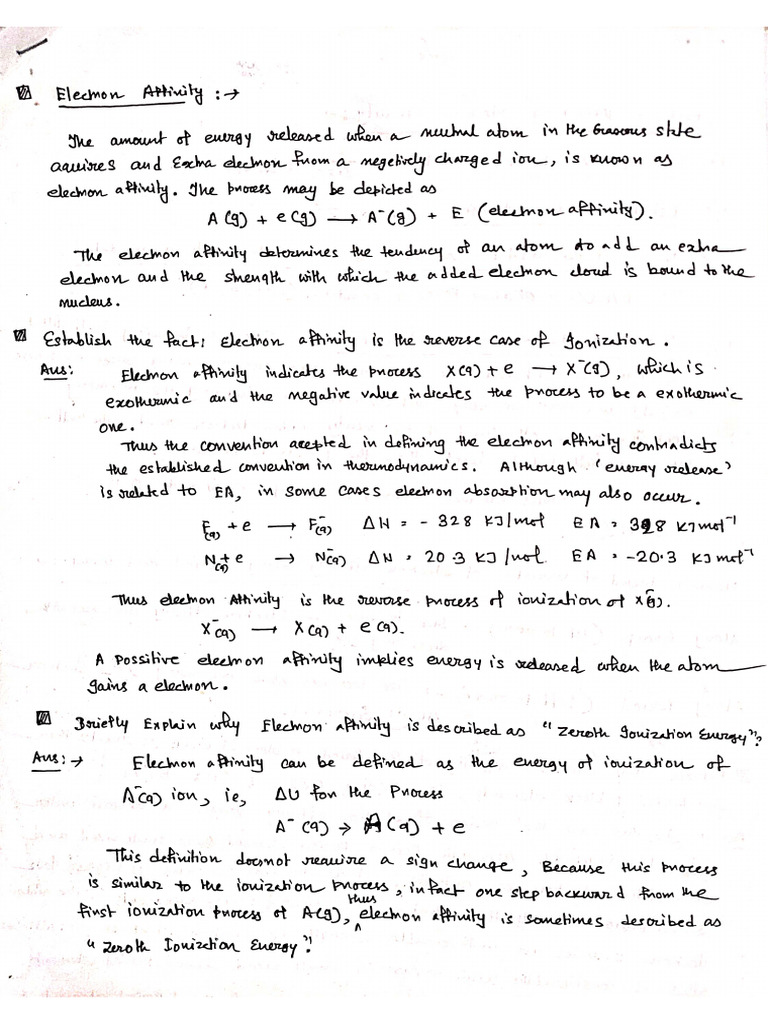 Electron Affinity :→
The amount of energy released when a neutral atom in the Gaseous state
aquires and Extra electron from a negetively charged ion, is known as
electron affinity. The process may be depicted as
A(g) + e(g) ⟶ A⁻(g) + E (electron affinity).
The electron affinity determines the tendency of an atom to add an extra
electron and the strength with which the added electron cloud is bound to the
nucleus.
Establish the fact: Electron affinity is the reverse case of Ionization.
Ans: Electron affinity indicates the process X(g) + e ⟶ X⁻(g), which is
exothermic and the negative value indicates the process to be a exothermic
one.
Thus the convention acepted in defining the electron affinity contradicts
the established convention in thermodynamics. Although 'energy release'
is related to EA, in some cases electron absorption may also occur.
F(g) + e ⟶ F⁻(g) ΔH = - 328 KJ/mol EA = 328 KJmol⁻¹
N(g) + e → N⁻(g) ΔH = 20.3 KJ/mol EA = -20.3 KJmol⁻¹
Thus electron Affinity is the reverse process of ionization of X⁻(g).
X⁻(g) ⟶ X(g) + e(g).
A possitive electron affinity implies energy is released when the atom
gains a electron.
Briefly Explain why Electron affinity is described as "Zeroth Ionization Energy"?
Ans:→ Electron affinity can be defined as the energy of ionization of
A⁻(g) ion, ie, ΔU for the Process
A⁻(g) → A(g) + e
This definition doesnot reauire a sign change, Because this process
is similar to the ionization process, infact one step backward from the
first ionization process of A(g), thus electron affinity is sometimes described as
"Zeroth Ionization Energy".